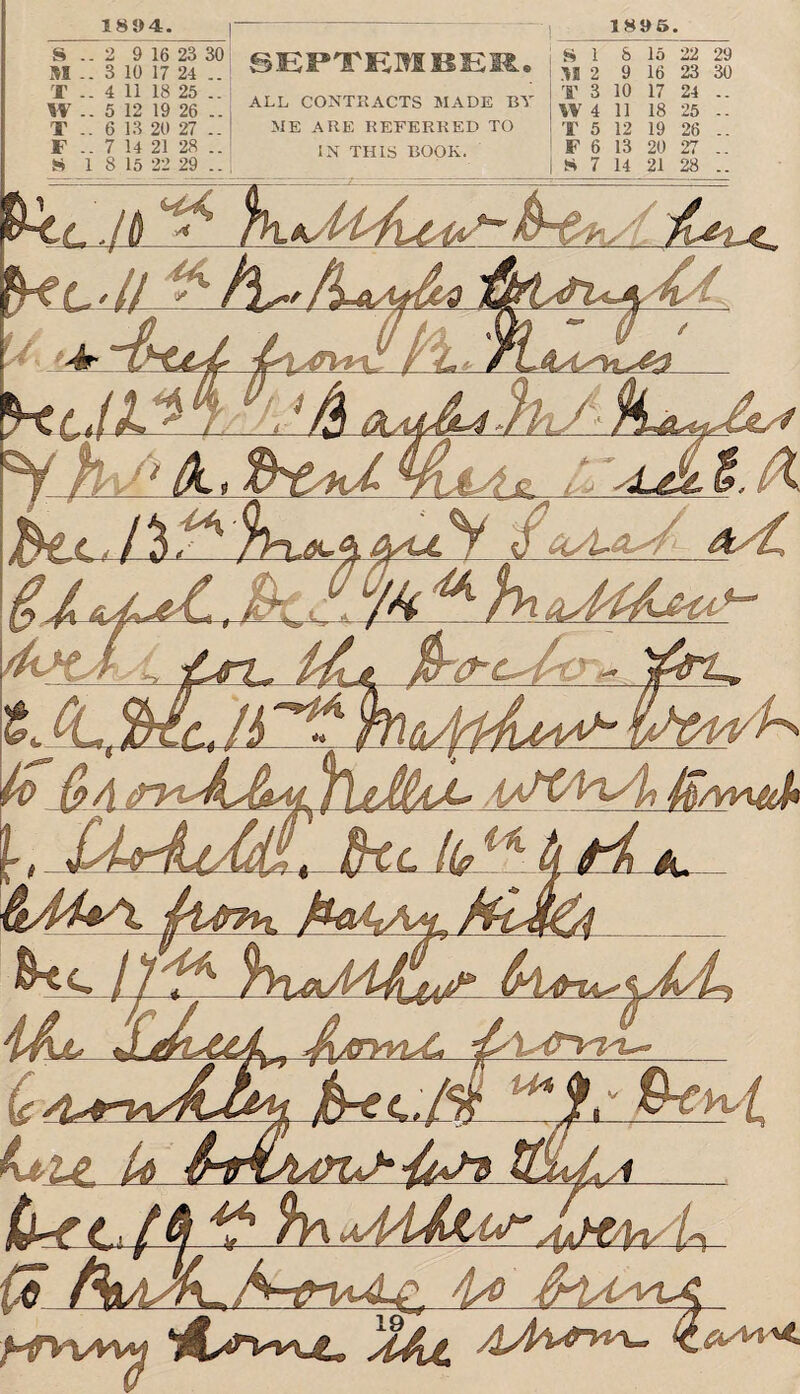 1894.
S .. 2 9 16 23 30
M .. 3 10 17 24 ..
T .. 4 11 18 25 ..
W .. 5 12 19 26 ..
T .. 6 13 20 27 ..
F .. 7 14 21 28 ..
S 1 8 15 22 29 ..
SEPTEMBER.
ALL CONTRACTS MADE BY
ME ARE REFERRED TO
IN THIS BOOK.
1895.
S 1 8 15 22 29
M 2 9 16 23 30
T 3 10 17 24 ..
W 4 11 18 25 ..
T 5 12 19 26 ..
F 6 13 20 27 ..
S 7 14 21 28 ..
Dec. 10th Matthew Dent here
Dec. 11th R. Bayles Brought
beef from R. Raines
Dec. 12th Bayles Bayles
A. Dent here to see E. A
Dec. 13th Maggie Y Sarah at
Chapel. Dec. 14th Matthew
went for the Doctor for
E. A, Dec. 15th Matthew went
to Cronkley Nellie went to meet
Dec 16th got a
letter from Harry
Dec 17th Matthew brought
the Sheep home from
Cronkley Dec. 18th J. Dent
here to borrow two Tups
Dec. 19th Matthew went
to Park House to bring
home The Strom came
19